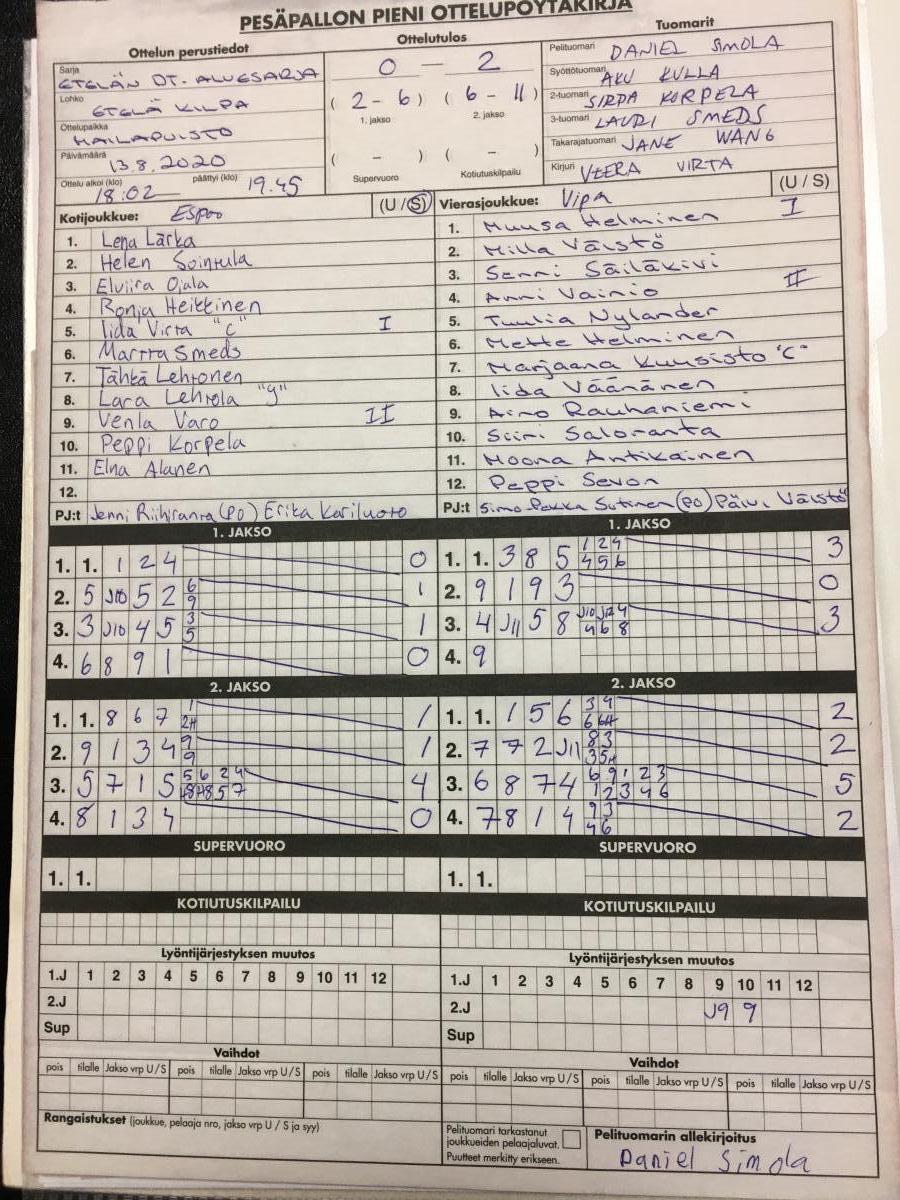 PESÄPALLON PIENI OTTELUPÖYTÄKIRJA
Ottelun perustiedot
Sarja
ETELÄN OT. ALUESARJA
Lohko
ETELÄ KILPA
Ottelupaikka
HAILAPUISTO
Päivämäärä
13.8.2020
Ottelu alkoi (klo) päättyi (klo)
18:02 19.45
Ottelutulos
0 — 2
( 2 - 6 ) ( 6 - 11 )
1. jakso 2. jakso
( - ) ( - )
Supervuoro Kotiutuskilpailu
Tuomarit
Pelituomari DANIEL SIMOLA
Syöttötuomari AKU KULLA
2-tuomari SIRPA KORPELA
3-tuomari LAURI SMEDS
Takarajatuomari JANE WANG
Kirjuri VEERA VIRTA
Kotijoukkue: Espoo (U / S)
1. Lena Lärka
2. Helen Sointula
3. Elviira Ojala
4. Ronja Heikkinen
5. Iida Virta "C" I
6. Martta Smeds
7. Tähkä Lehtonen
8. Lara Lehtola "J"
9. Venla Varo II
10. Peppi Korpela
11. Elna Alanen
12.
PJ:t Jenni Riihiranta (PO) Erika Kariluoto
Vierasjoukkue: Vipa (U / S)
1. Muusa Helminen I
2. Milla Väistö
3. Senni Säiläkivi
4. Anni Vainio II
5. Tuulia Nylander
6. Mette Helminen
7. Marjaana Kuusisto "C"
8. Iida Väänänen
9. Aino Rauhaniemi
10. Siiri Saloranta
11. Moona Antikainen
12. Peppi Sevon
PJ:t Simo Pekka Sutinen (PO) Päivi Väistö
1. JAKSO
1. 1. 1 2 4 0
2. 5 J10 5 2 6 9 1
3. 3 J10 4 5 3 5 1
4. 6 8 9 1 0
2. JAKSO
1. 1. 8 6 7 1 2H 1
2. 9 1 3 4 9 9 1
3. 5 7 1 5 5 6 2 4 4
4. 8 1 3 4 0
SUPERVUORO
1. 1.
KOTIUTUSKILPAILU
Lyöntijärjestyksen muutos
1.J 1 2 3 4 5 6 7 8 9 10 11 12
2.J
Sup
Vaihdot
pois tilalle Jakso vrp U/S pois tilalle Jakso vrp U/S pois tilalle Jakso vrp U/S
Rangaistukset (joukkue, pelaaja nro, jakso vrp U / S ja syy)
1. JAKSO
1. 1. 3 8 5 1 2 4 4 5 6 3
2. 9 1 9 3 0
3. 4 J11 5 8 J10 J12 4 4 6 8 3
4. 9
2. JAKSO
1. 1. 1 5 6 3 4 6 6H 2
2. 7 7 2 J11 8 3 3 5H 2
3. 6 8 7 4 6 9 1 2 3 1 2 3 4 6 5
4. 7 8 1 4 9 3 4 6 2
SUPERVUORO
1. 1.
KOTIUTUSKILPAILU
Lyöntijärjestyksen muutos
1.J 1 2 3 4 5 6 7 8 9 10 11 12
2.J J9 9
Sup
Vaihdot
pois tilalle Jakso vrp U/S pois tilalle Jakso vrp U/S pois tilalle Jakso vrp U/S
Pelituomari tarkastanut
joukkueiden pelaajaluvat.
Puutteet merkitty erikseen.
Pelituomarin allekirjoitus
Daniel Simola